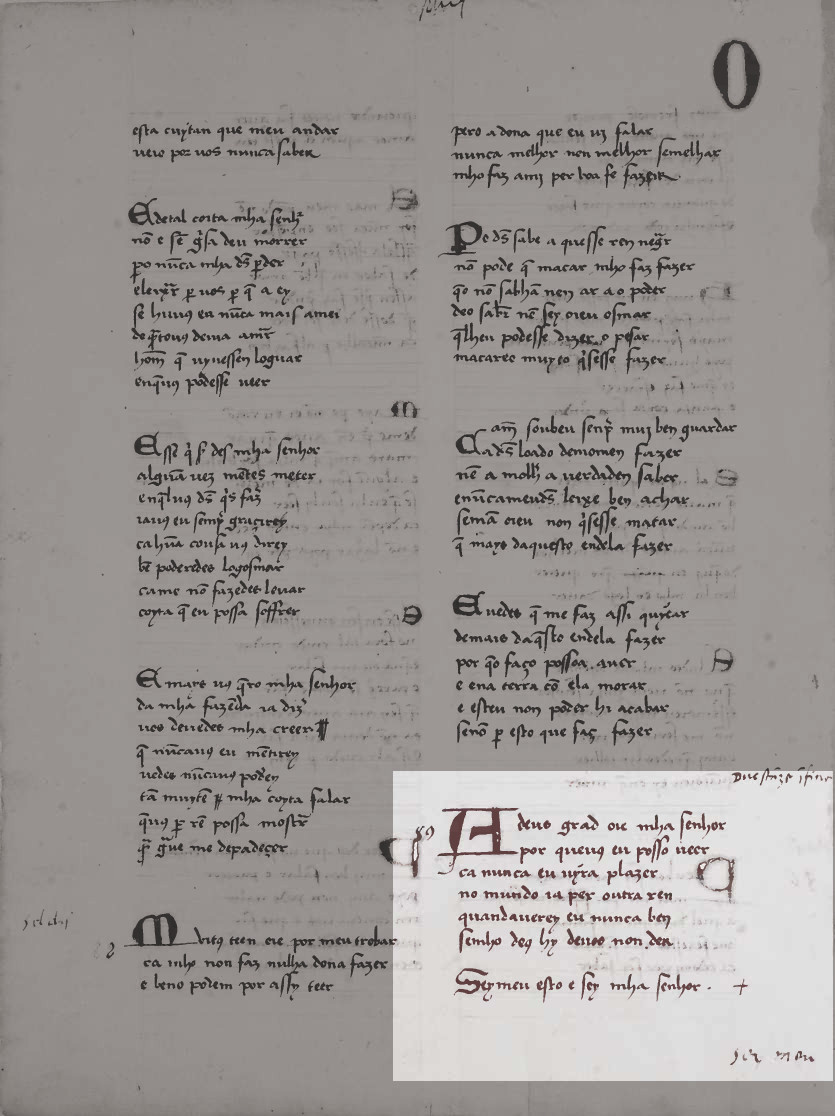 esta cuytan que meu andar
ueio por uos nunca saber
Edetal coita mha senhr
nō e sē g̃sa deu morrer
p̄o nūca mha d̄s p̄der
p̄ uos p̄ q̄ a ey
se hiuus eu nūca mais amei
hom̄ q̄ uyuessen loguar
podesse ueer
Esse des mha senhor
algūa uez mētes meter
ca hūa cousa uꝯ direy
bē poderedes logosmar
came nō fazedes leuar
coyta q̄ eu possa soffrer
E mais uꝯ q̄ro mha senhor
da mha fazēda ia diz̄
uos deuedes mha creer
q̄ nūcauꝯ eu mētirey
uedes nūcauꝯ podey
tā muytē mha coyta falar
q̄uꝯ p̄ rē possa mostr̄
me depadeçer
8
Muitꝯ teen oie por meu trobar
ca mho non faz nulha dona fazer
e beno podem por assy teer
O
pero a dona que eu uy falar
nunca melhor nen melhor semelhar
mho faz ami per boa fe fazer
Pe d̄s sabe a quesse ren negr̄
nō pode q̄ macar mho faz fazer
q̄o nō sabhā nen ar a o poder
deo sabr̄ nē sey oieu osmar
q̄lheu podesse dizer o pesar
macareo muyto q̄sesse fazer
am̄ soubeu senp̄ muj ben guardar
Ca d̄s loado demomen fazer
nē a molh̄ a uerdaden saber
leixe ben achar
semā oieu non q̄sesse matar
q̄ mays daquesto endela fazer
E uedes q̄ me faz assi quytar
demais daq̄sto endela fazer
por q̄o faço possoa auer
e ena terra cō ela morar
e esteu non poder hi acabar
senō p̄ esto que faz fazer
89
A deus grad oie mha senhor
por queuꝯ eu posso ueer
ca nunca eu uyra plazer
no mundo ia per outra ren
quandauerey eu nunca ben
semho deꝯ hy deuos non der
Seymeu esto e sey mha senhor . +